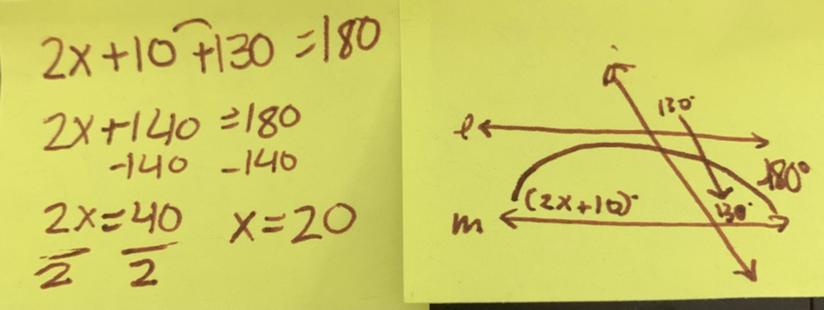 2x+10+130=180
2x+140=180
-140 -140
2x=40 x=20
2 2
130°
l
180°
(2x+10)°
130°
m